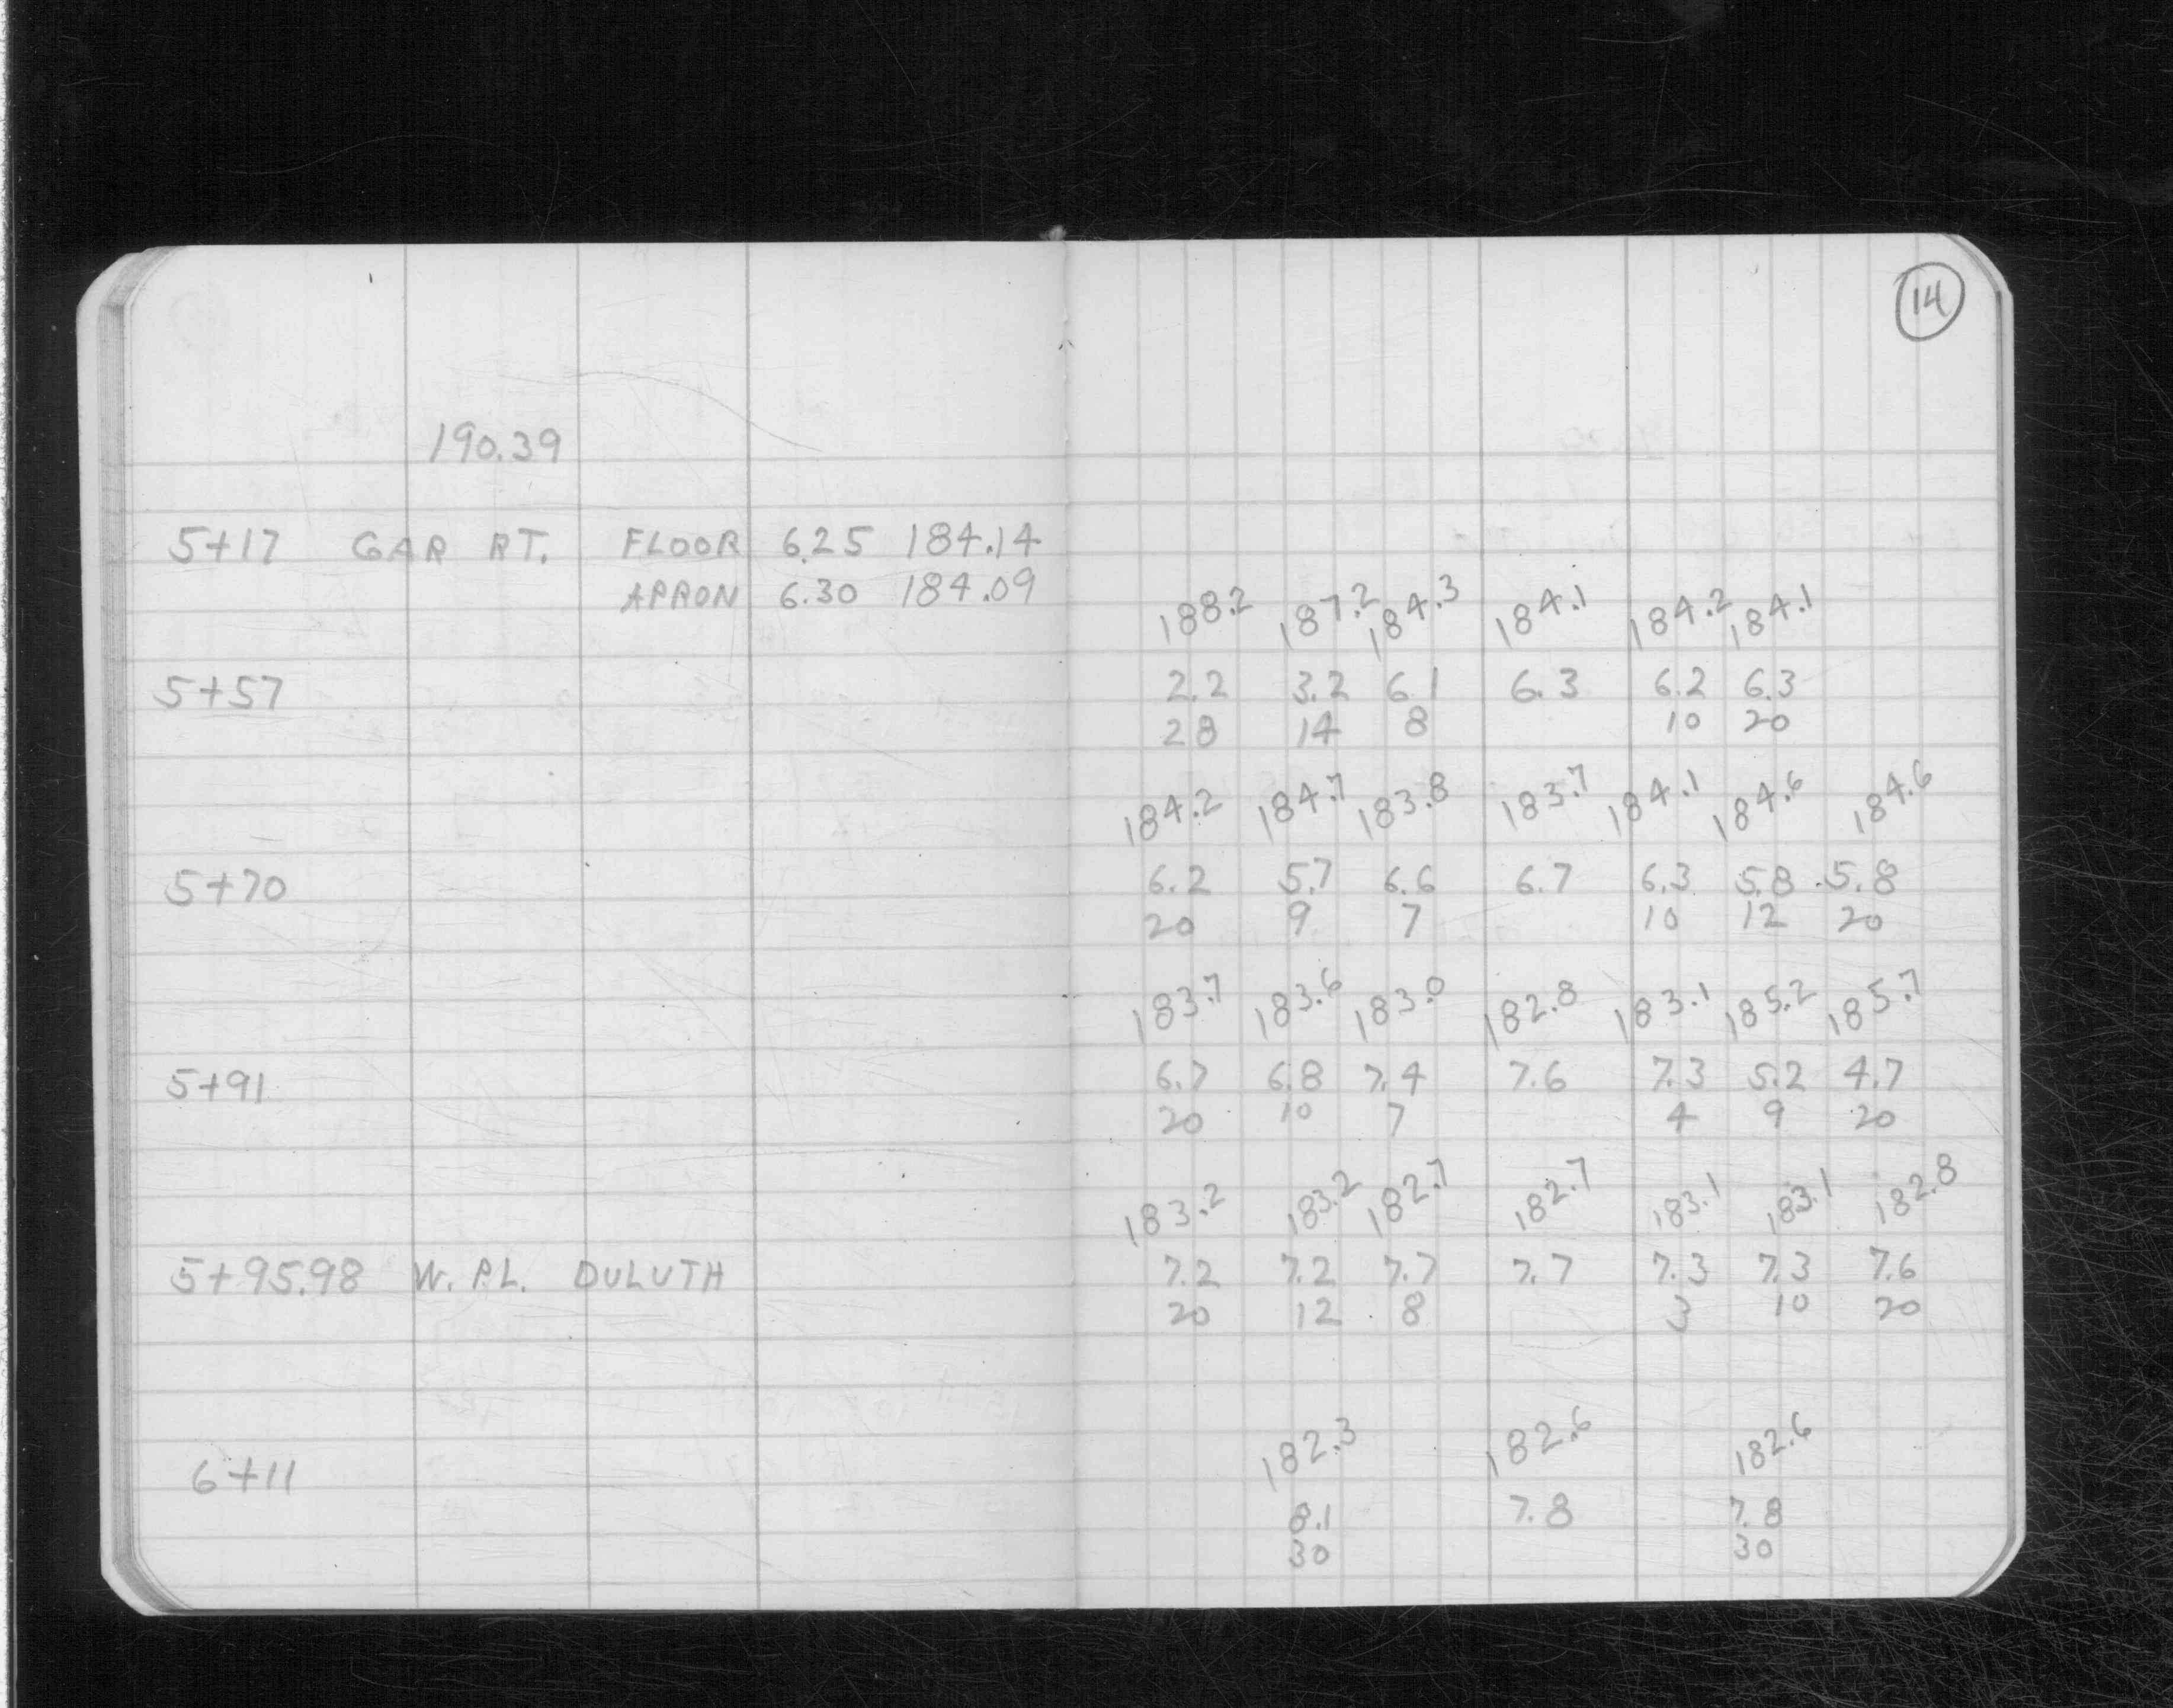 14
190.39
5+17 GAR RT. FLOOR 6.25 184.14
APRON 6.30 184.09
188.2 187.2 184.3 184.1 184.2 184.1
5+57 2.2 3.2 6.1 6.3 6.2 6.3
28 14 8 10 20
184.2 184.7 183.8 183.7 184.1 184.6 184.6
5+70 6.2 5.7 6.6 6.7 6.3 5.8 5.8
20 9 7 10 12 20
183.7 183.6 183.0 182.8 183.1 185.2 185.7
5+91 6.7 6.8 7.4 7.6 7.3 5.2 4.7
20 10 7 4 9 20
183.2 183.2 182.7 182.7 183.1 183.1 182.8
5+95.98 W. P.L. DULUTH 7.2 7.2 7.7 7.7 7.3 7.3 7.6
20 12 8 3 10 20
182.3 182.6 182.6
6+11
8.1 7.8 7.8
30 30